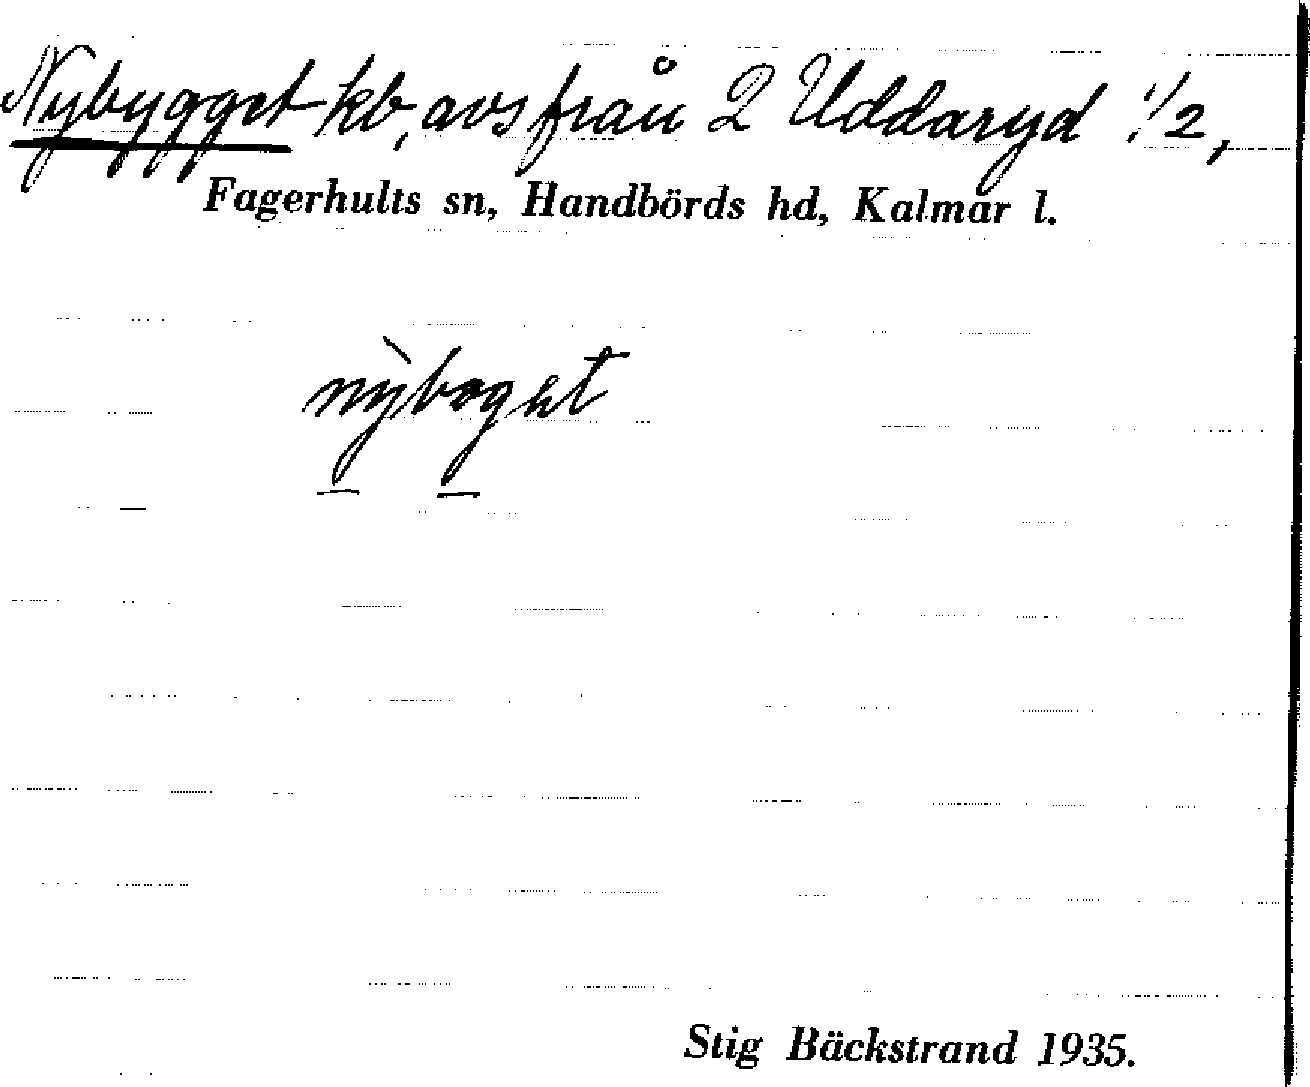 Nybygget kb, avs från 2 Uddaryd 1/2,
Fagerhults sn, Handbörds hd, Kalmar l.
nỳbøgət
Stig Bäckstrand 1935.